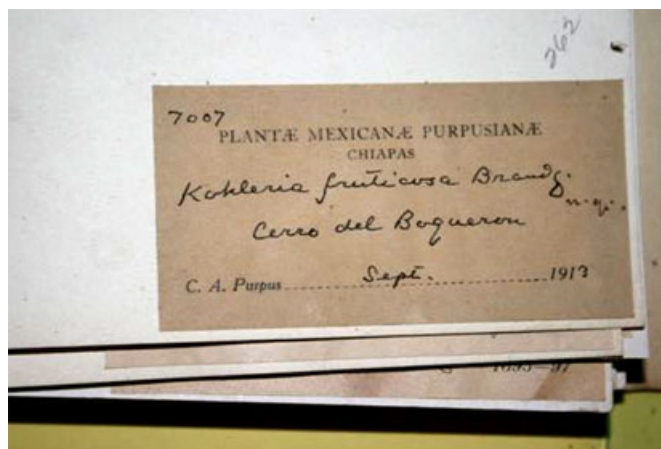 262
7007
PLANTÆ MEXICANÆ PURPUSIANÆ
CHIAPAS
Kohleria fruticosa Brandg.
Cerro del Boqueron
C. A. Purpus Sept. 1913
1895-97